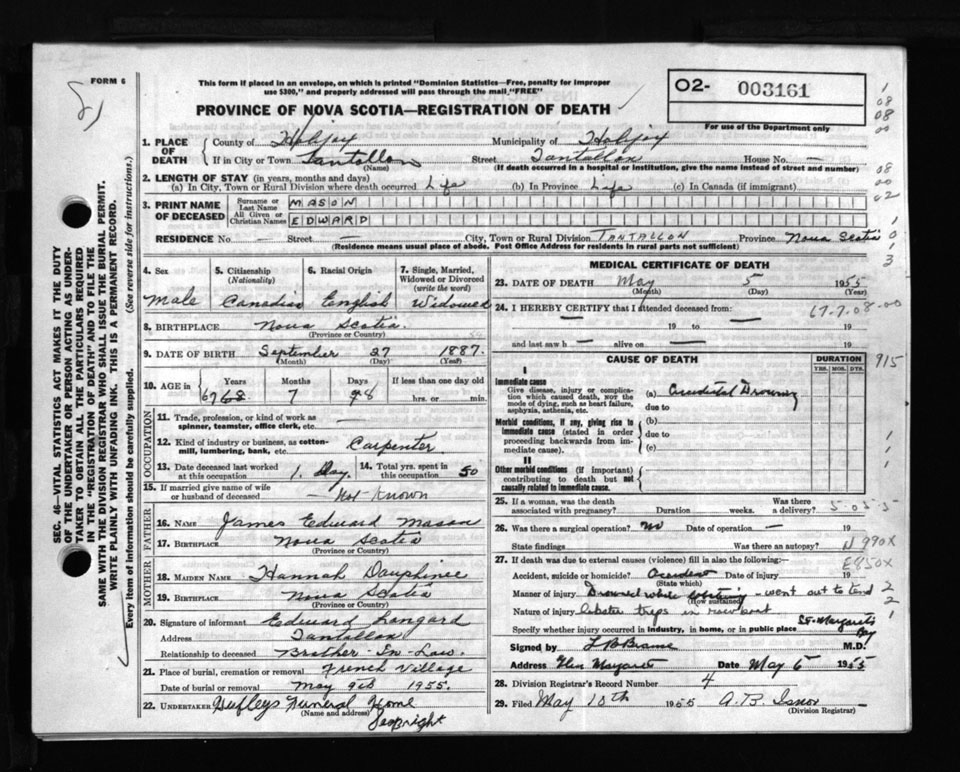 FORM 6
This form if placed in an envelope, on which is printed "Dominion Statistics—Free, penalty for improper
use $300," and properly addressed will pass through the mail "FREE"
PROVINCE OF NOVA SCOTIA—REGISTRATION OF DEATH
O2- 003161
For use of the Department only
SEC. 46—VITAL STATISTICS ACT MAKES IT THE DUTY
OF THE UNDERTAKER OR PERSON ACTING AS UNDER-
TAKER TO OBTAIN ALL THE PARTICULARS REQUIRED
IN THE "REGISTRATION OF DEATH" AND TO FILE THE
SAME WITH THE DIVISION REGISTRAR WHO SHALL ISSUE THE BURIAL PERMIT.
WRITE PLAINLY WITH UNFADING INK. THIS IS A PERMANENT RECORD.
Every item of information should be carefully supplied. (See reverse side for instructions.)
1. PLACE OF DEATH County of Halifax Municipality of Halifax
If in City or Town Tantallon Street Tantallon House No. —
(Name) (If death occurred in a hospital or institution, give the name instead of street and number)
2. LENGTH OF STAY (in years, months and days)
(a) In City, Town or Rural Division where death occurred Life (b) In Province Life (c) In Canada (if immigrant)
3. PRINT NAME OF DECEASED Surname or Last Name MASON
All Given or Christian Names EDWARD
RESIDENCE No — Street — City, Town or Rural Division TANTALLON Province Nova Scotia
(Residence means usual place of abode. Post Office Address for residents in rural parts not sufficient)
4. Sex 5. Citizenship (Nationality) 6. Racial Origin 7. Single, Married, Widowed or Divorced (write the word)
Male Canadian English Widowed
8. BIRTHPLACE Nova Scotia.
(Province or Country)
9. DATE OF BIRTH September 27 1887.
(Month) (Day) (Year)
10. AGE in Years Months Days If less than one day old
67 68 7 8 hrs. or min.
OCCUPATION
11. Trade, profession, or kind of work as
spinner, teamster, office clerk, etc. —
12. Kind of industry or business, as cotton-
mill, lumbering, bank, etc. Carpenter
13. Date deceased last worked at this occupation 1. Day. 14. Total yrs. spent in this occupation 50
15. If married give name of wife
or husband of deceased — Not Known
FATHER
16. NAME James Edward Mason
17. BIRTHPLACE Nova Scotia
(Province or Country)
MOTHER
18. MAIDEN NAME Hannah Dauphinee
19. BIRTHPLACE Nova Scotia
(Province or Country)
20. Signature of informant Edward Langard
Address Tantallon
Relationship to deceased Brother-In-Law.
21. Place of burial, cremation or removal French Village
Date of burial or removal May 9th 1955.
22. UNDERTAKER Funeral Home
(Name and address) Seabright
MEDICAL CERTIFICATE OF DEATH
23. DATE OF DEATH May 5 1955
(Month) (Day) (Year)
24. I HEREBY CERTIFY that I attended deceased from:
— 19 to — 19
and last saw h — alive on — 19
CAUSE OF DEATH DURATION
YRS. MOS. DYS.
I
Immediate cause
Give disease, injury or complica-
tion which caused death, NOT the
mode of dying, such as heart failure,
asphyxia, asthenia, etc.
(a) Accidental Drowning
due to
Morbid conditions, if any, giving rise to
immediate cause (stated in order
proceeding backwards from im-
mediate cause).
(b)
due to
(c)
II
Other morbid conditions (if important)
contributing to death but not
causally related to immediate cause.
25. If a woman, was the death Was there
associated with pregnancy? Duration weeks. a delivery?
26. Was there a surgical operation? No Date of operation — 19
State findings Was there an autopsy? N 990X
27. If death was due to external causes (violence) fill in also the following:— E850X
Accident, suicide or homicide? Accident Date of injury 19
(State which)
Manner of injury Drowned while - went out to tend
(How sustained)
Nature of injury lobster traps in rowboat
Specify whether injury occurred in industry, in home, or in public place St. Margarets Bay
Signed by M.D.
Address Glen Margaret Date May 6 1955
28. Division Registrar's Record Number 4
29. Filed May 10th 1955 A.B. Isnor
(Division Registrar)
915